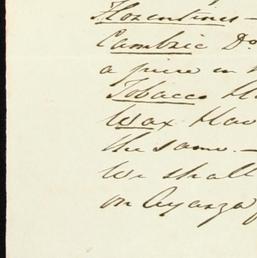 Florentines -
Cambric Do
a piece in
Tobacco
Wax Hav
the same. -
We shall
on Ayanza